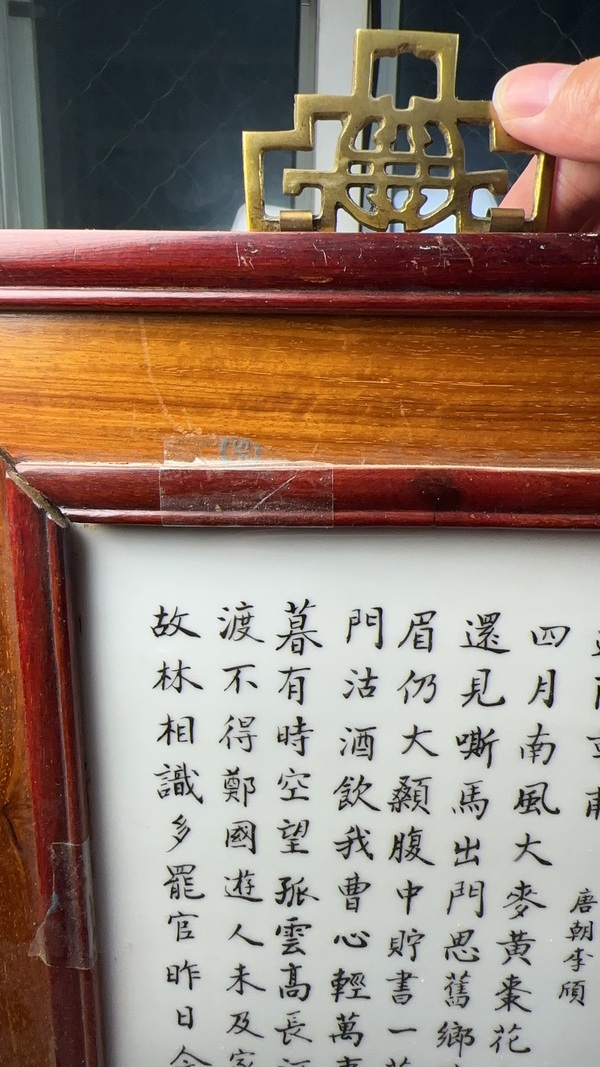 唐朝李頎
四月南風大麥黃棗花
還見嘶馬出門思舊鄉
眉仍大顙腹中貯書一
門沽酒飲我曹心輕萬
暮有時空望孤雲高長
渡不得鄭國遊人未及家
故林相識多罷官昨日今